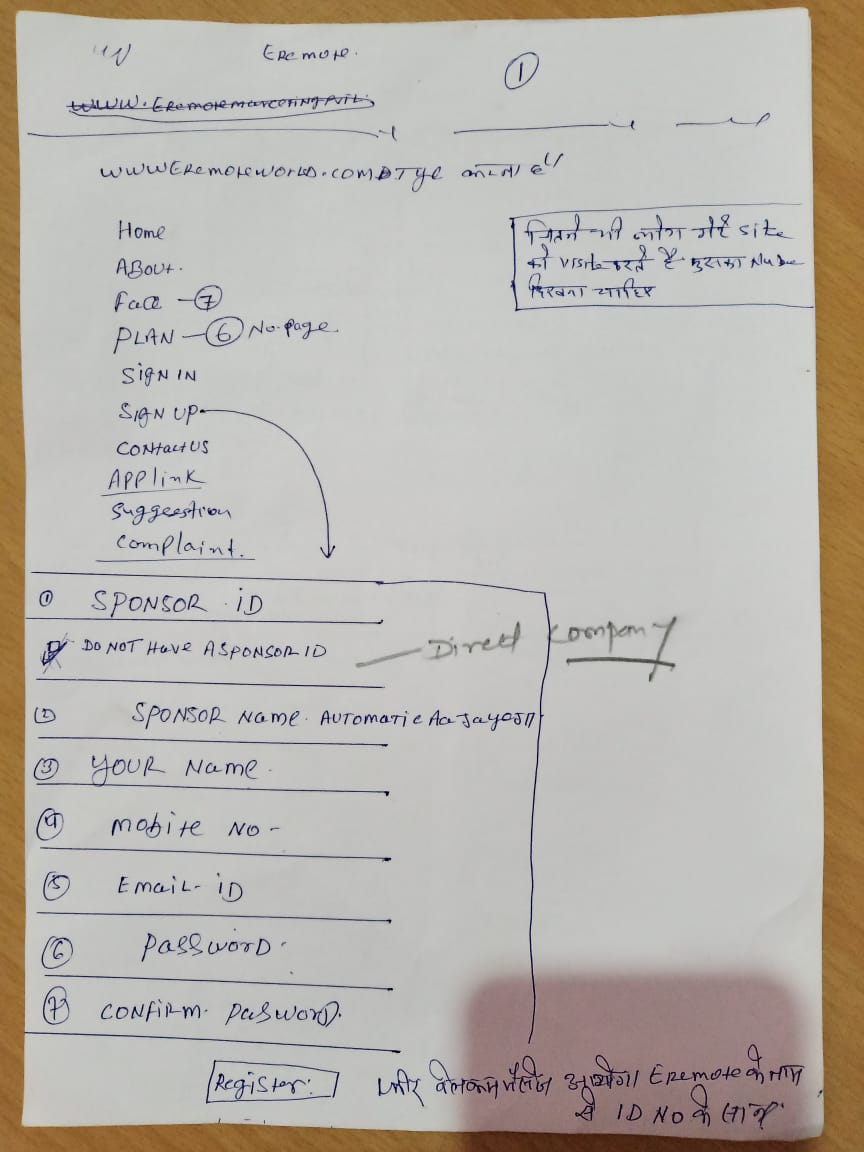 Eremote.
①
WWW.Eremotemarcetingpvtl.
WWWEREMOTEWORLD.COM Tyel करना है"
जितने भी लोग मेरे site
को visite करते हैं उसका Number
दिखना चाहिए
Home
ABOUT.
Face - ⑦
PLAN - ⑥ No. page
SIGN IN
SIGN UP
CONtactUS
APPlink
Suggeestion
Complaint.
① SPONSOR ID
DO NOT Have A SPONSOR ID - Direct Company
② SPONSOR Name. AUTOMATIC Aa Jayega
③ YOUR Name.
④ Mobile NO -
⑤ EmaiL- iD
⑥ PassworD.
⑦ CONFIRM. PasworD.
Register: और वेलकम मैसेज आयेगा Eremote के नाम
से ID NO के साथ